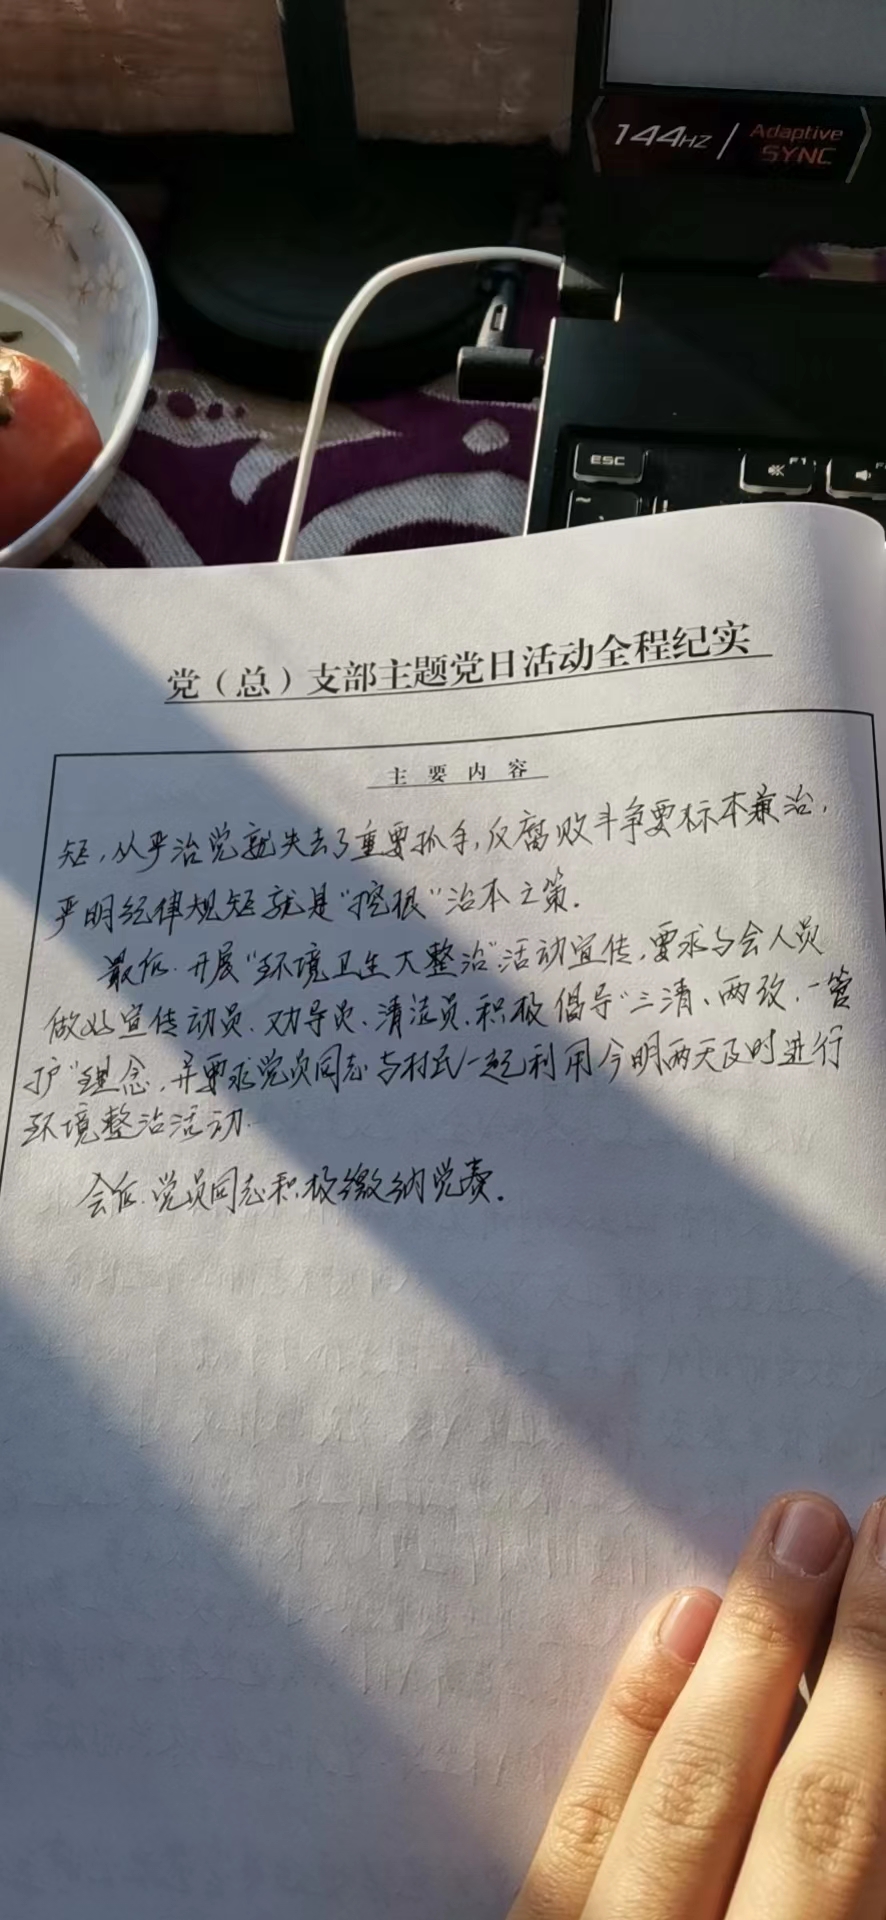 144HZ / Adaptive SYNC
ESC
F1
~
党（总）支部主题党日活动全程纪实
主要内容
矩，从严治党就失去了重要抓手，反腐败斗争要标本兼治，
严明纪律规矩就是“挖根”治本之策。
最后，开展“环境卫生大整治”活动宣传，要求与会人员
做好宣传动员、劝导员、清洁员，积极倡导“三清、两改、一管
护”理念，并要求党员同志与村民一起利用今明两天及时进行
环境整治活动.
会后，党员同志积极缴纳党费。